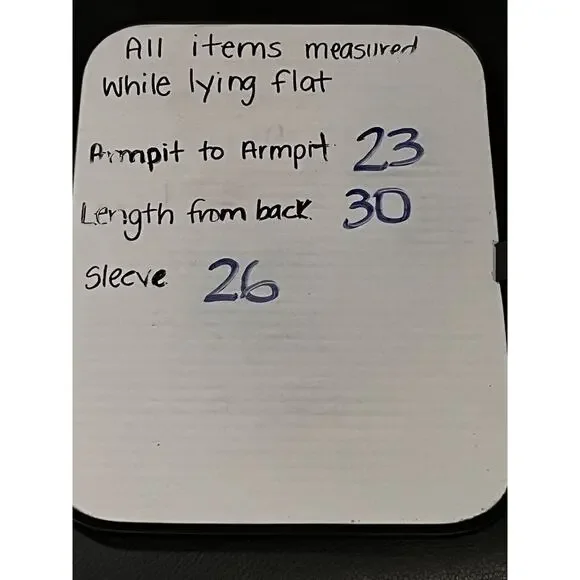 All items measured
while lying flat
Armpit to Armpit 23
Length from back 30
Sleeve 26